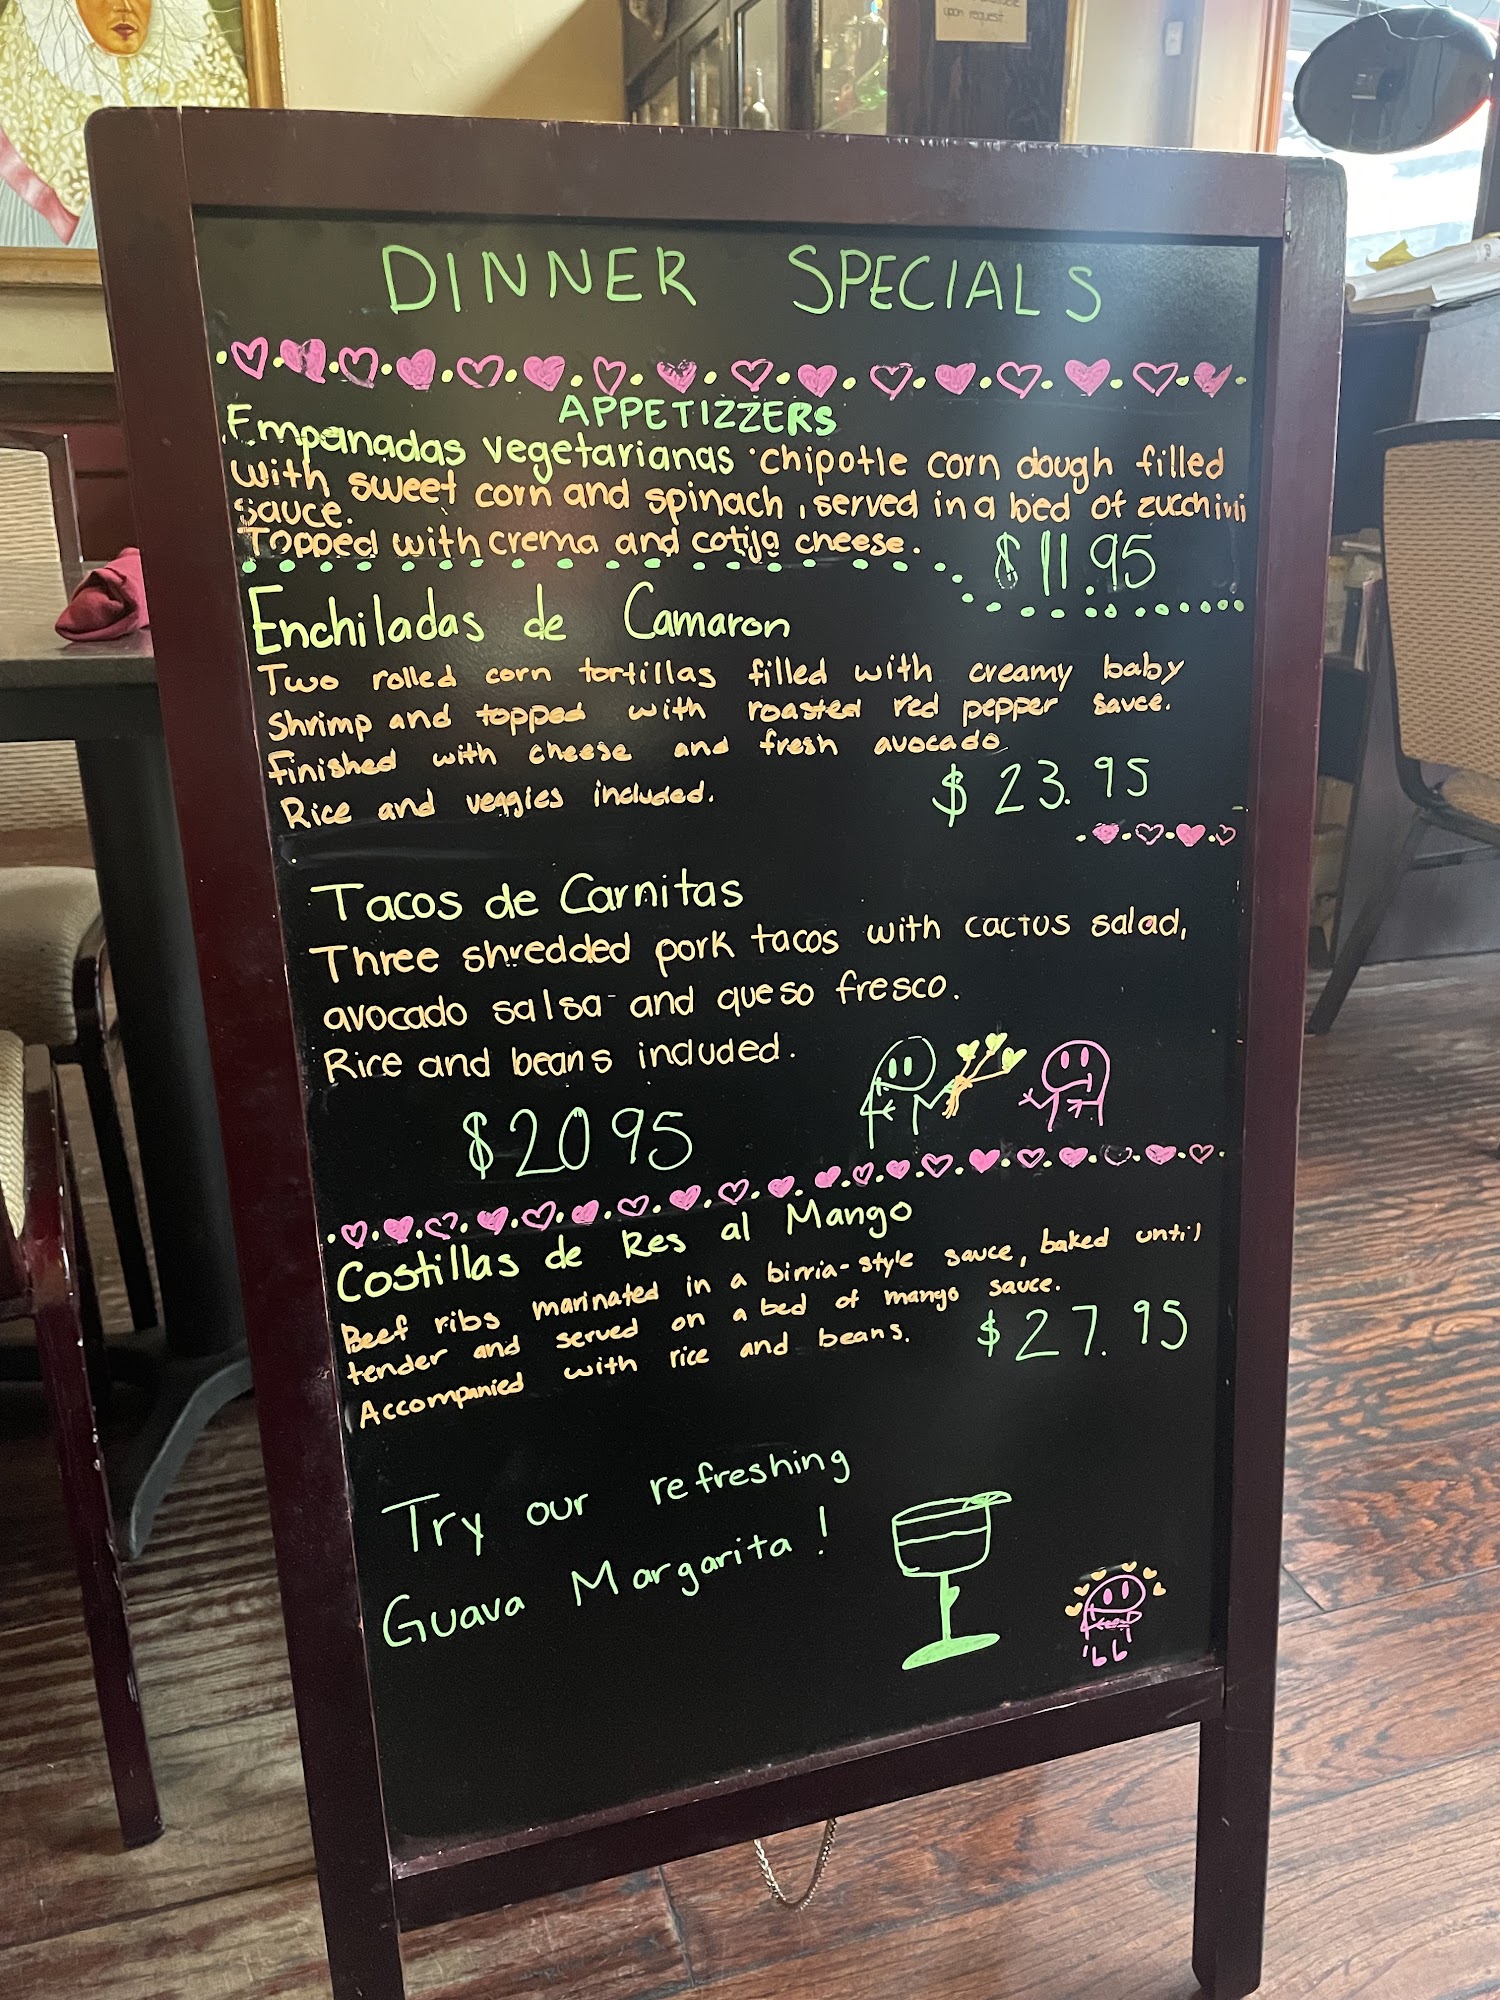 upon request
DINNER SPECIALS
APPETIZZERS
Empanadas vegetarianas · chipotle corn dough filled
with sweet corn and spinach, served in a bed of zucchini
sauce.
Topped with crema and cotija cheese.
$11.95
Enchiladas de Camaron
Two rolled corn tortillas filled with creamy baby
shrimp and topped with roasted red pepper sauce.
Finished with cheese and fresh avocado
Rice and veggies included.
$23.95
Tacos de Carnitas
Three shredded pork tacos with cactus salad,
avocado salsa and queso fresco.
Rice and beans included.
$2095
Costillas de Res al Mango
Beef ribs marinated in a birria-style sauce, baked until
tender and served on a bed of mango sauce.
Accompanied with rice and beans.
$27.95
Try our refreshing
Guava Margarita!